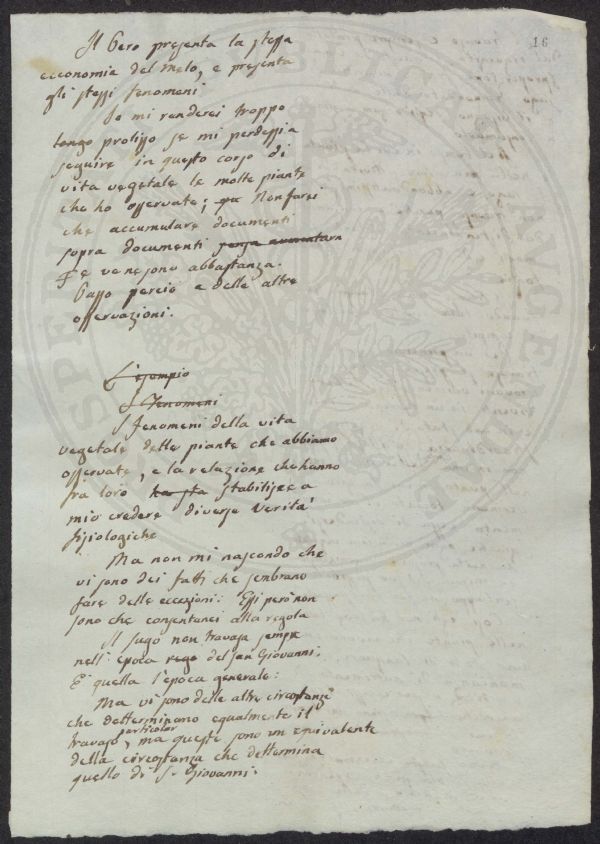 16
Il Pero presenta la stessa
economia del Melo, e presenta
gli stessi fenomeni
Io mi renderei troppo
lungo prolisso se mi perdessi a
seguire in questo corso di
vita vegetale le molte piante
che ho osservate; Non farei
che accumulare documenti
sopra documenti senza aumentarn
E ve ne sono abbastanza.
Passo perciò a delle altre
osservazioni.
L'esempio
I Fenomeni
I Fenomeni della vita
vegetale delle piante che abbiamo
osservate, e la relazione che hanno
fra loro stabilisce a
mio credere diverse verità
fisiologiche
Ma non mi nascondo che
vi sono dei fatti che sembrano
fare delle eccezioni: Essi però non
sono che consentanei alla regola
Il sugo non travasa sempre
nell'epoca del San Giovanni.
E' quella l'epoca generale:
Ma vi sono delle altre circostanze
che determinano egualmente il
travaso particolar, ma queste sono un equivalente
della circostanza che determina
quello di S. Giovanni.